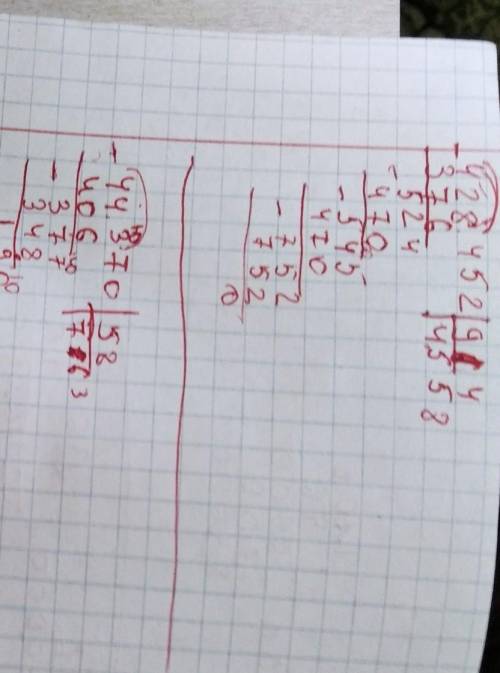 428452 | 94
376 | 4558
- 524
470
- 545
470
- 752
752
0
- 44370 | 58
406 | 763
- 377
348